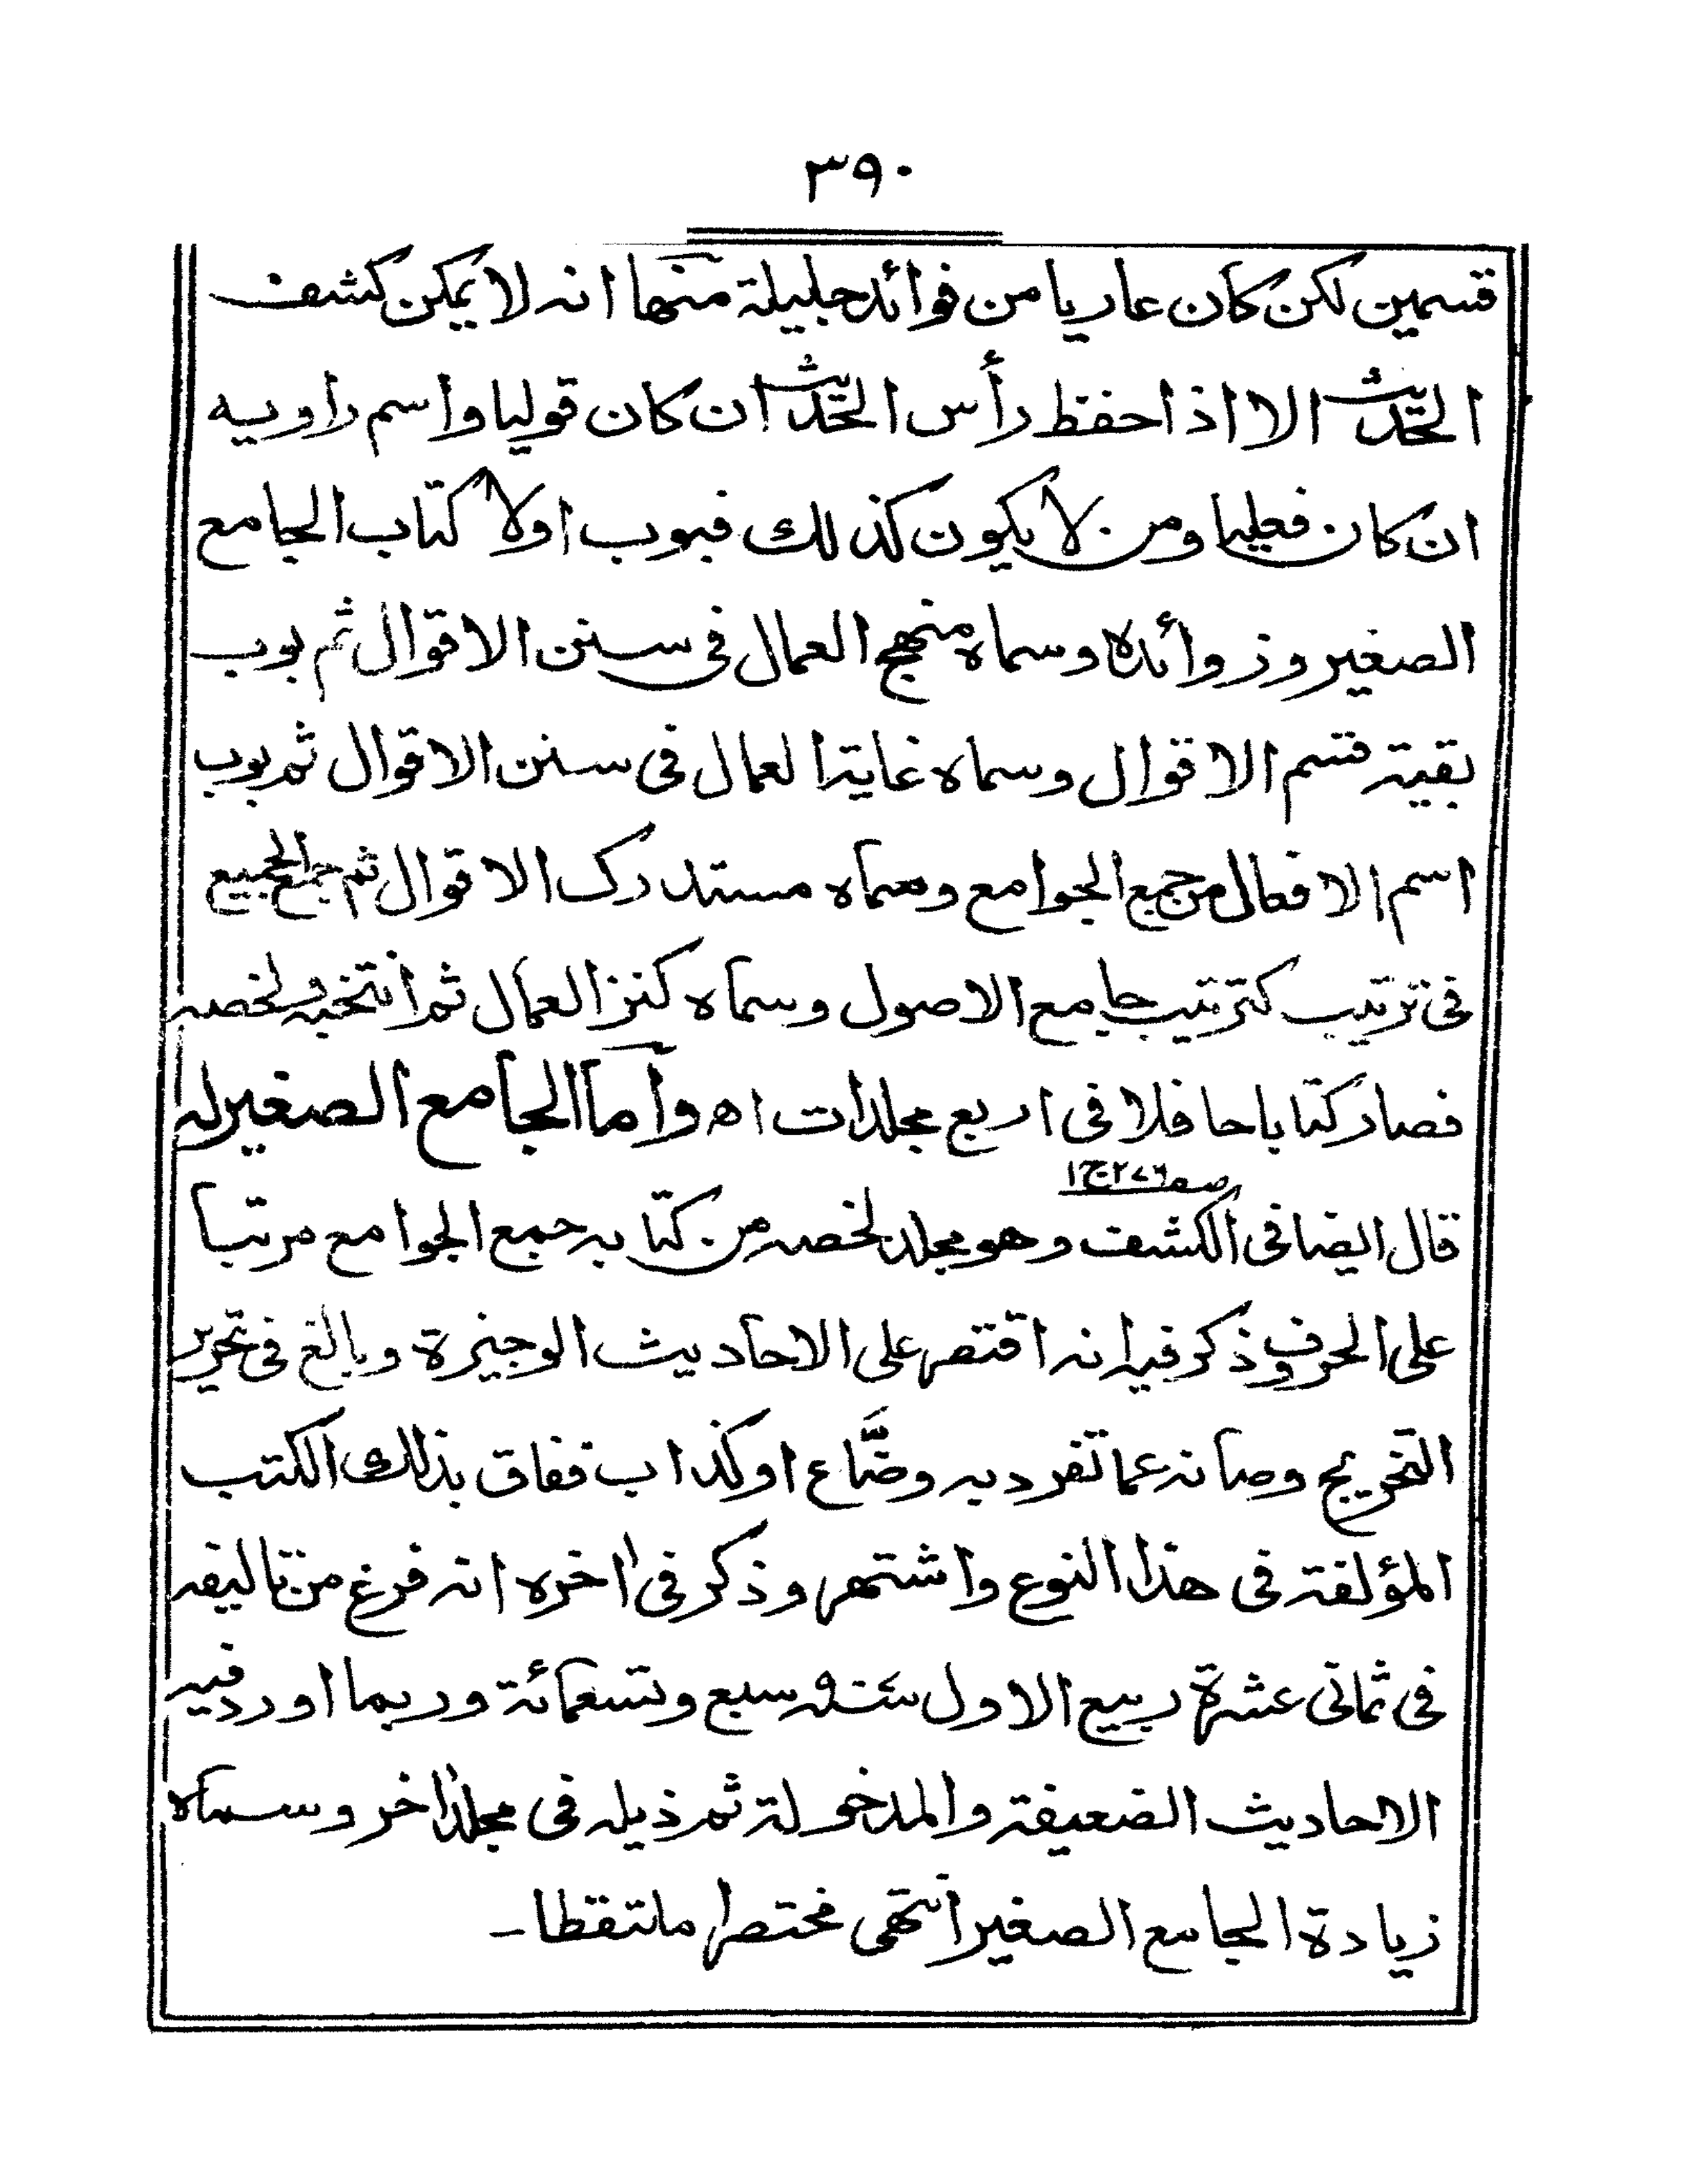 ٣٩٠
قسمين لكن كان عاريا من فوائد جليلة منها انه لا يمكن كشف
الحديث الا اذا حفظ رأس الحديث ان كان قوليا واسم راويه
ان كان فعليا ومن لا يكون كذلك فبوب اولا كتاب الجامع
الصغير وزوائده وسماه منهج العمال فى سنن الاقوال ثم بوب
بقية قسم الاقوال وسماه غاية العمال فى سنن الاقوال ثم بوب
اسم الافعال من جمع الجوامع وسماه مستدرك الاقوال ثم جمع الجميع
فى ترتيب كترتيب جامع الاصول وسماه كنز العمال ثم انتخبه ولخصه
فصار كتابا حافلا فى اربع مجلدات اھ وأما الجامع الصغير له
صـ ٢٧٦ ج ١
قال ايضا فى الكشف وهو مجلد لخصه من كتابه جمع الجوامع مرتبا
على الحروف ذكر فيه انه اقتصر على الاحاديث الوجيزة وبالغ فى تحرير
التخريج وصانه عما تفرد به وضّاع او كذاب ففاق بذلك الكتب
المؤلفة فى هذا النوع واشتهر وذكر فى اخره انه فرغ من تاليفه
فى ثمانى عشرة ربيع الاول سنة ٩٠٧ سبع وتسعمائة وربما اورد فيه
الاحاديث الضعيفة والمدخولة ثم ذيله فى مجلد اخر وسماه
زيادة الجامع الصغير انتهى مختصرا ملتقطا۔